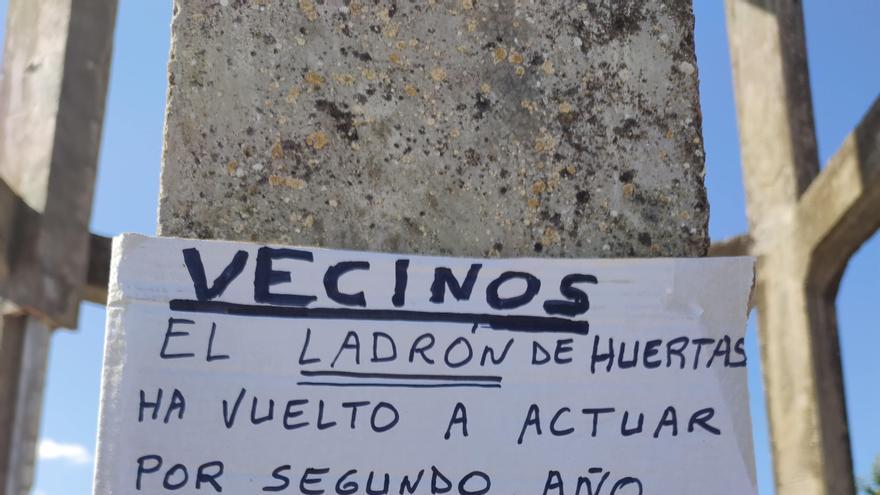 VECINOS
EL LADRÓN DE HUERTAS
HA VUELTO A ACTUAR
POR SEGUNDO AÑO